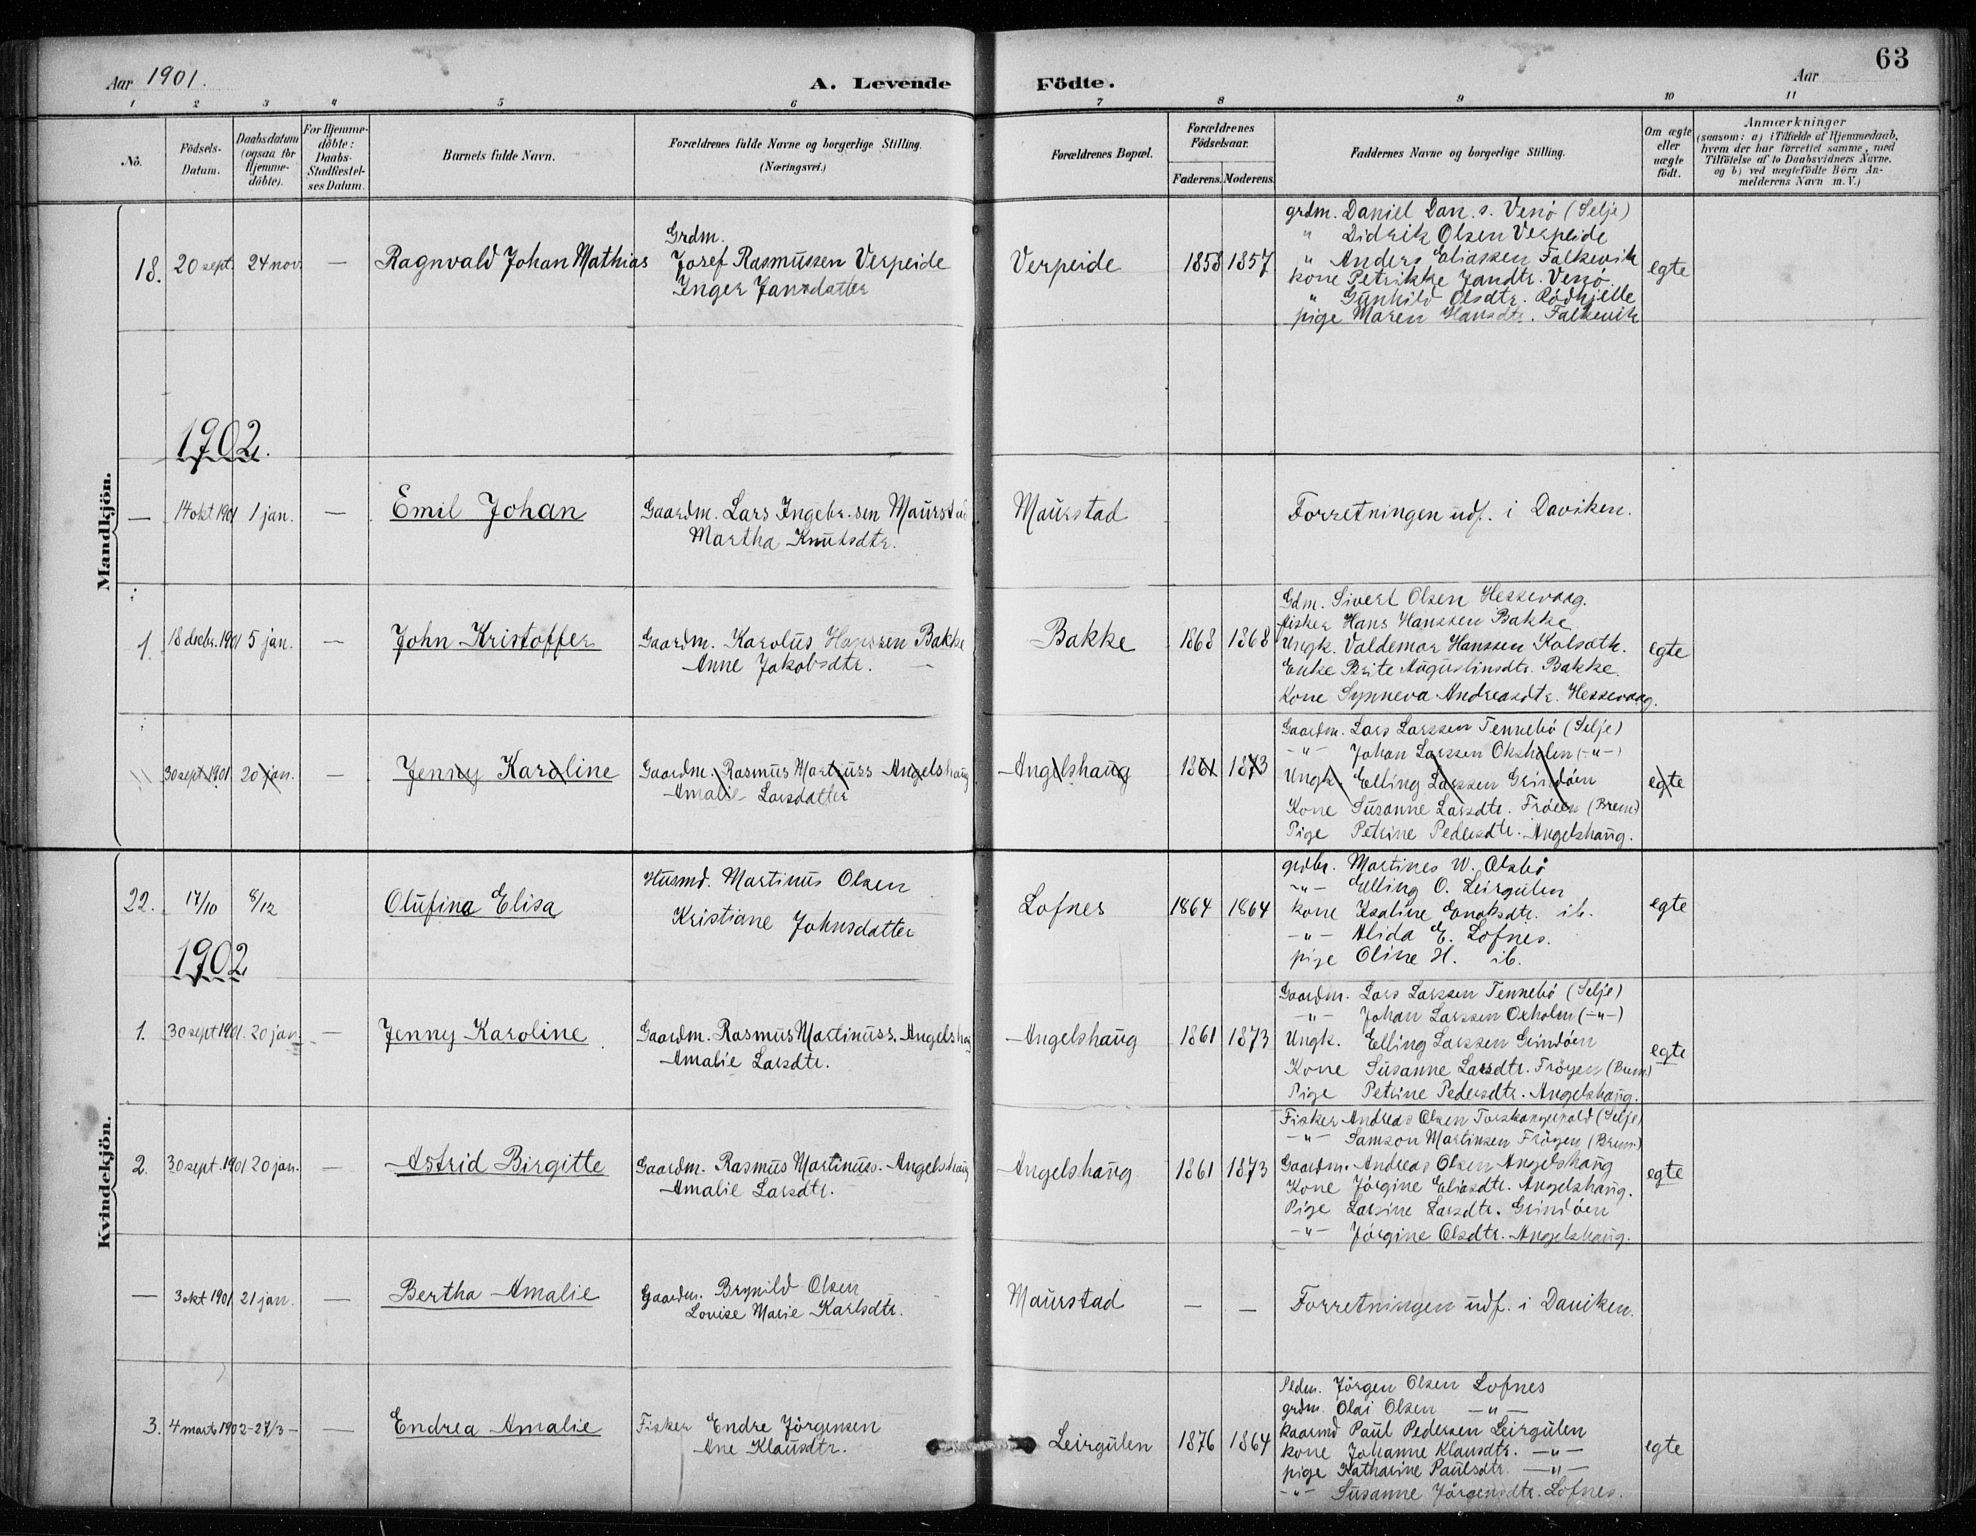 Aar 1901. A. Levende Födte. Aar 63
1 2 3 4 5 6 7 8 9 10 11
Nô. Födsels-Datum. Daabsdatum (ogsaa for Hjemme-döbte). For Hjemme-döbte: Daabs-Stadfæstel-ses Datum. Barnets fulde Navn. Forældrenes fulde Navne og borgerlige Stilling. (Næringsvei.) Forældrenes Bopæl. Forældrenes Födselsaar. Faderens. Moderens. Faddernes Navne og borgerlige Stilling. Om ægte eller uægte födt. Anmærkninger (saasom: a) i Tilfælde af Hjemmedaab, hvem der har forrettet samme, med Tilföielse af to Daabsvidners Navne. og b) ved uægtefödte Börn An-melderens Navn m. V.)
Mandkjön.
18. 20 sept. 24 nov. — Ragnvald Johan Mathias
Grdm.
Josef Rasmussen Verpeide
Inger Jansdatter
Verpeide 1858 1857
grdm. Daniel Dan.s. Venö (Selje)
" Didrik Olsen Verpeide
" Anders Eliassen Falkevik
kone Petrikke Jandtr. Venö.
" Gunhild Olsdtr. Rödhjelle
pige Maren Hansdtr. Falkevik
egte
1902.
— 14 okt 1901 1 jan. — Emil Johan
Gaardm. Lars Ingebr.sen Maurstad
Martha Knutsdtr.
Maurstad
Forretningen udf. i Daviken.
1. 18 decbr. 1901 5 jan. — John Kristoffer
Gaardm. Karolus Hanssen Bakke
Anne Jakobsdtr. —
Bakke 1868 1868
Gdm. Sivert Olsen Hessevaag.
fisker Hans Hanssen Bakke
Ungk. Valdemar Hanssen Kolsæth.
Enke Brite Augustinsdtr. Bakke.
Kone Synneva Andreasdtr. Hessevaag.
egte
30 sept 1901 20 jan. — Jenny Karoline
Gaardm. Rasmus Martinuss. Angelshaug
Amalie Larsdatter
Angelshaug 1861 1873
Gaardm. Lars Larssen Tennebö (Selje)
—"— Johan Larssen Oksholm (—"—)
Ungk. Elling Larssen Grindöen
Kone Susanne Larsdtr. Fröien (Brem)
Pige Petrine Pedersdtr. Angelshaug.
egte
Kvindekjön.
22. 17/10 8/12 Olufina Elisa
Husmd. Martinus Olsen
Kristiane Johnsdatter
Lofnes 1864 1864
grdbr. Martines W. Otsbö
—"— Elling O. Leirgulen
kone Ksaline Enoksdtr. ib.
—"— Alida E. Lofnes.
pige Oline H. ib.
egte
1902
1. 30 sept 1901. 20 jan — Jenny Karoline
Gaardm. Rasmus Martinuss. Angelshaug
Amalie Larsdtr.
Angelshaug 1861 1873
Gaardm. Lars Larssen Tennebö (Selje)
—"— Johan Larssen Oxholm (—"—)
Ungk. Elling Larssen Grindöen
Kone Susanne Larsdtr. Fröyen (Brem)
Pige Petrine Pedersdtr. Angelshaug.
egte
2. 30 sept. 1901 20 jan. — Astrid Birgitte
Gaardm. Rasmus Martinus. Angelshaug
Amalie Larsdtr.
Angelshaug 1861 1873
Fisker Andreas Olsen (Selje)
—"— Samson Martinsen Fröyen (Brem)
Gaardm. Andreas Olsen Angelshaug
Kone Jörgine Eliasdtr. Angelshaug.
Pige Larsine Larsdtr. Grindöen
—"— Jörgine Olsdtr. Angelshaug.
egte
— 3 okt 1901 21 jan. — Bertha Amalie
Gaardm. Brynild Olsen
Louise Marie Karlsdtr.
Maurstad — —
Forretningen udf. i Daviken.
3. 4 marts 1902 - 27/3 - — Endrea Amalie
Fisker Endre Jörgensen
Ane Klausdtr.
Leirgulen 1876 1864
Pldm. Jörgen Olsen Lofnes
grdm. Olai Olsen —"—
kaarmd Paul Pedersen Leirgulen
kone Johanne Klausdtr. —"—
pige Katharine Paulsdtr. —"—
—"— Susanne Jörgensdtr. Lofnes.
egte